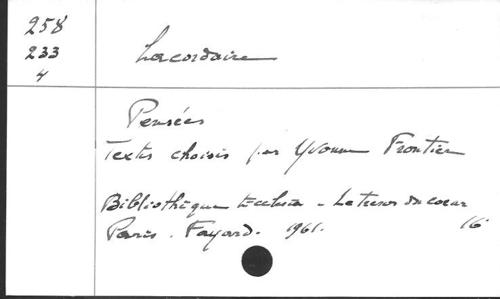 258
233
4
Lacordaire
Pensées
Textes choisis par Yvonne Frontier
Bibliothèque Ecclesia - Le trésor du coeur
Paris. Fayard. 1961. 16°